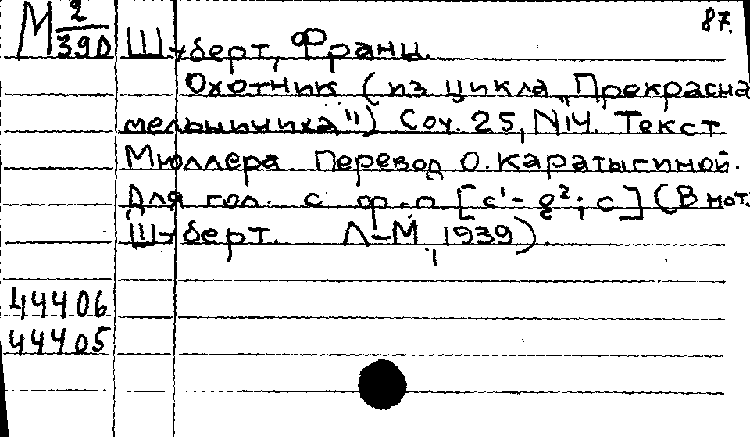 87.
М 2/390 Шуберт, Франц.
Охотник (из цикла „Прекрасна
мельничиха") Соч. 25, N14. Текст
Мюллера Перевод О. Каратыгиной.
Для гол. с ф-п [c¹-g²; c] (В нот.
Шуберт. Л-М, 1939).
44406
44405